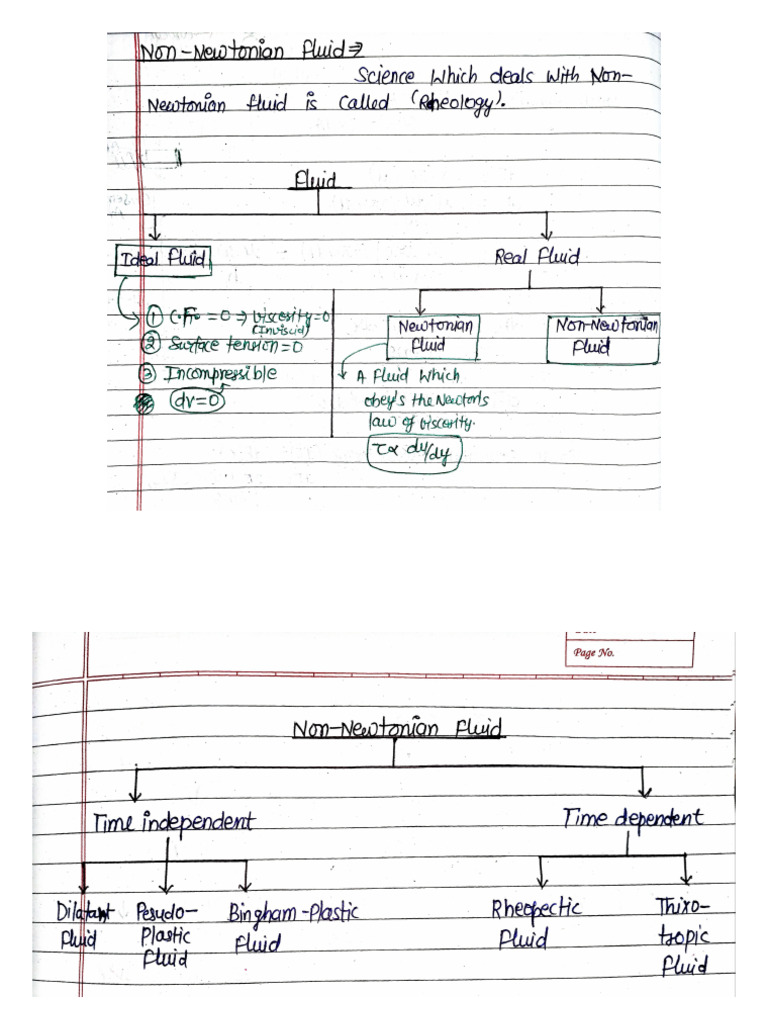 Non-Newtonian fluid ⇒
Science which deals with Non-
Newtonian fluid is called (Rheology).
Fluid
Ideal fluid
Real fluid
① C.F. = 0 ⇒ viscosity=0
(Inviscid)
② Surface tension=0
③ Incompressible
dv=0
Newtonian
fluid
Non-Newtonian
fluid
A fluid which
obey's the Newton's
law of viscosity.
τ∝ du/dy
Page No.
Non-Newtonian fluid
Time independent
Time dependent
Dilatant
fluid
Pesudo-
Plastic
fluid
Bingham-Plastic
fluid
Rheopectic
fluid
Thixo-
tropic
fluid